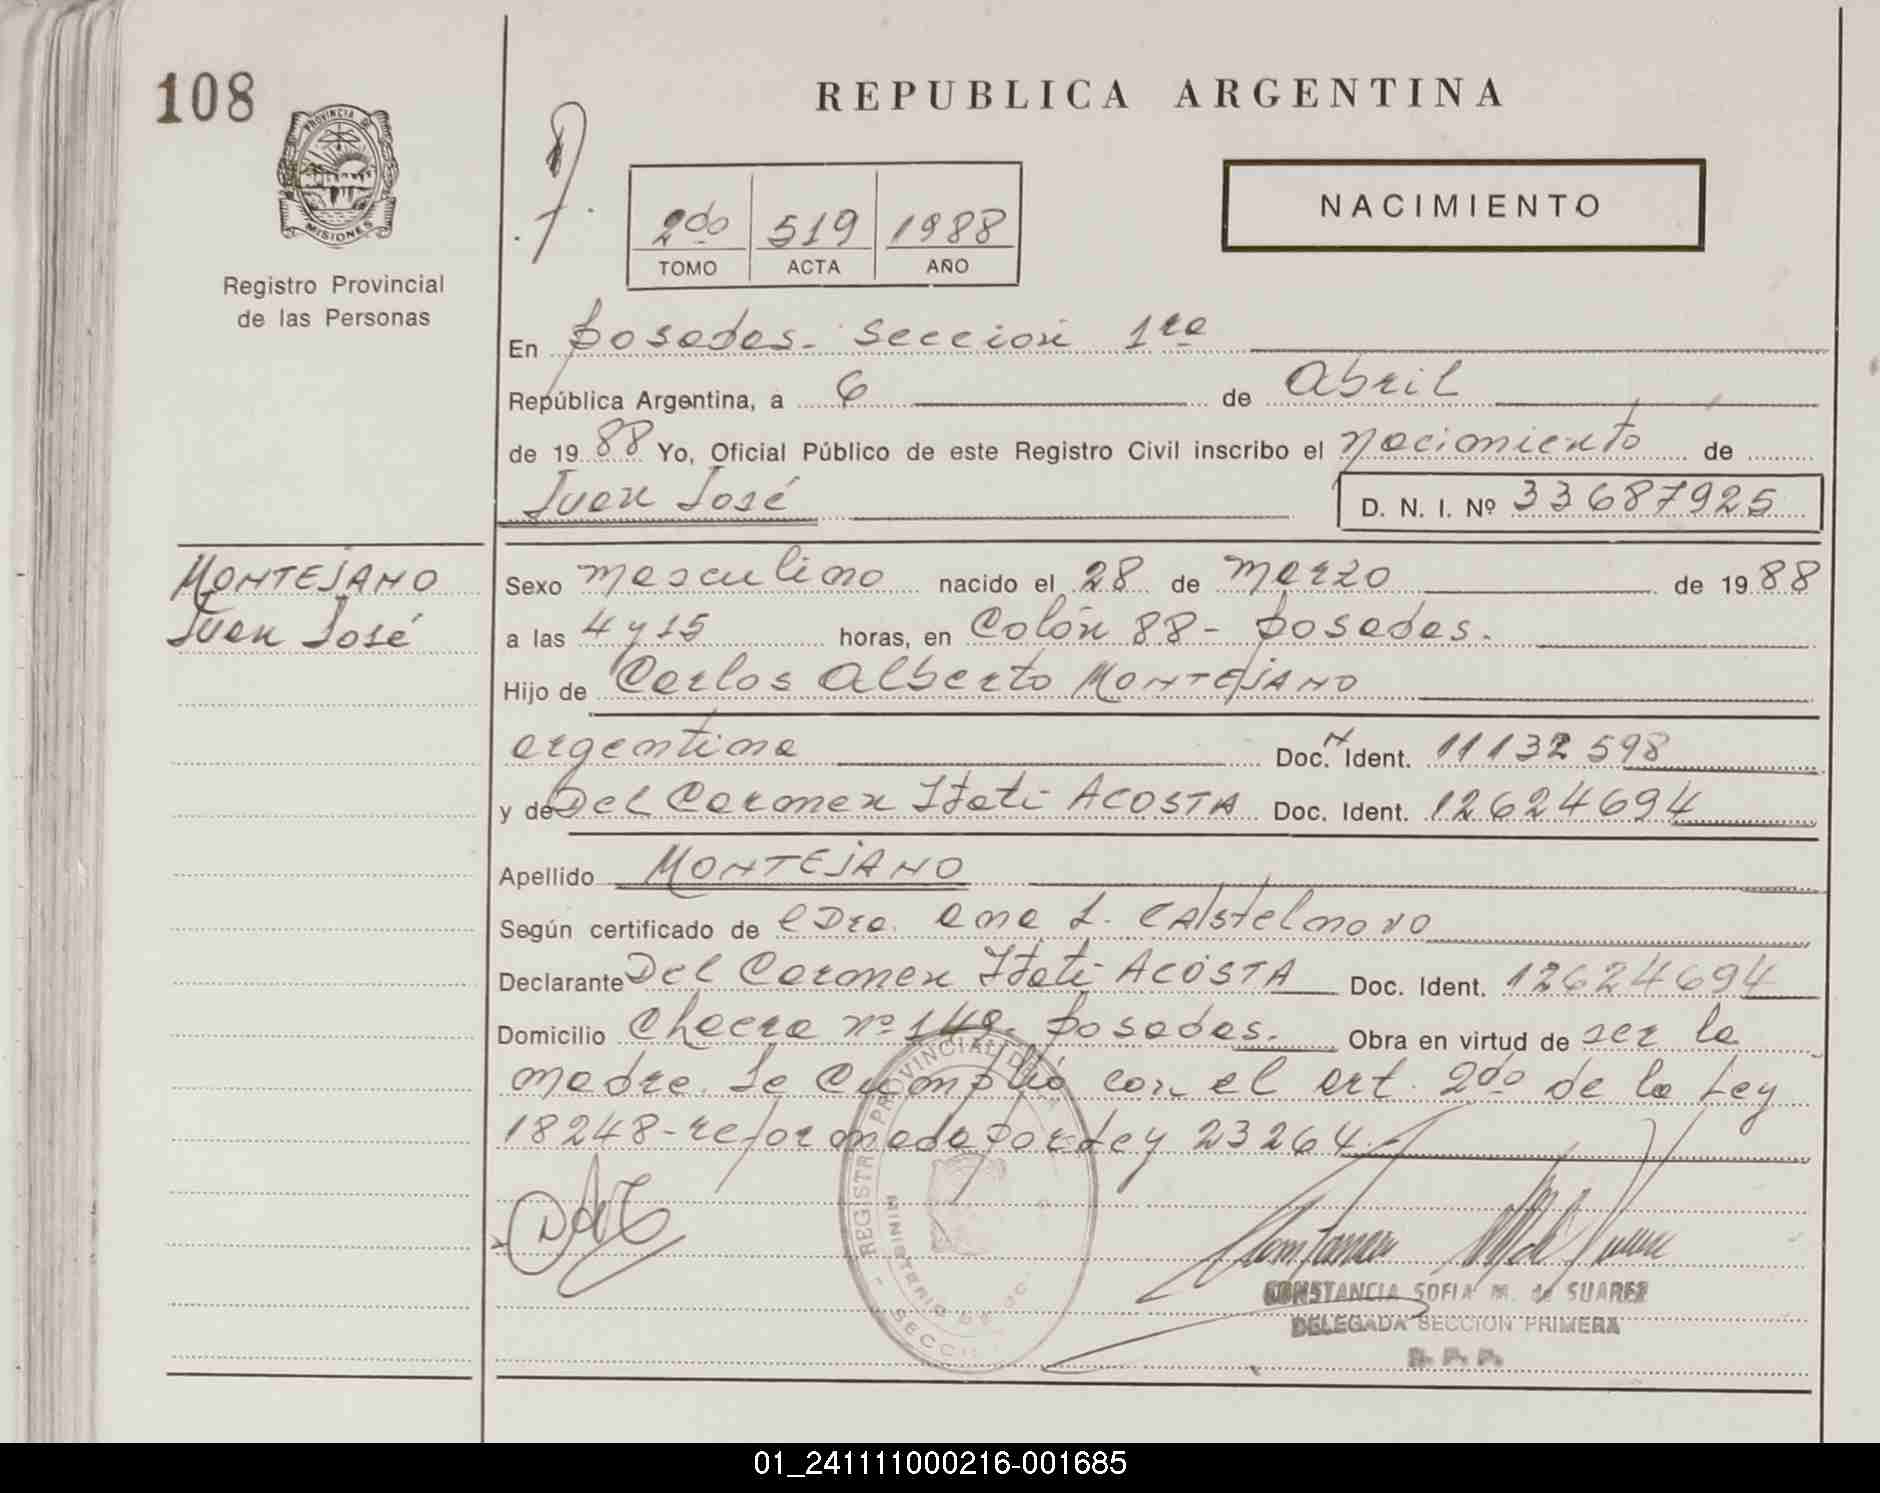 108
REPUBLICA ARGENTINA
PROVINCIA DE
MISIONES
Registro Provincial
de las Personas
NACIMIENTO
2do 519 1988
TOMO ACTA AÑO
En Posadas. Sección 1ra
República Argentina, a 6 de Abril
de 1988 Yo, Oficial Público de este Registro Civil inscribo el nacimiento de
Juan José D. N. I. Nº 33687925
MONTEJANO
Juan José
Sexo masculino nacido el 28 de marzo de 1988
a las 4 y 15 horas, en Colón 88- Posadas.
Hijo de Carlos Alberto MONTEJANO
argentina Doc. Ident. 11132598
y de Del Carmen Itatí ACOSTA Doc. Ident. 12624694
Apellido MONTEJANO
Según certificado de Dra. Ana L. Castelnovo
Declarante Del Carmen Itatí ACOSTA Doc. Ident. 12624694
Domicilio Chacra nº 149. Posadas. Obra en virtud de ser la
madre. Se cumplió con el art. 2do de la Ley
18248-reformada por Ley 23264.-
REGISTRO PROVINCIAL DE LA
MINISTERIO DE GO
SECCI
CONSTANCIA SOFIA M. de SUAREZ
DELEGADA SECCION PRIMERA
R. P. P.
01_241111000216-001685